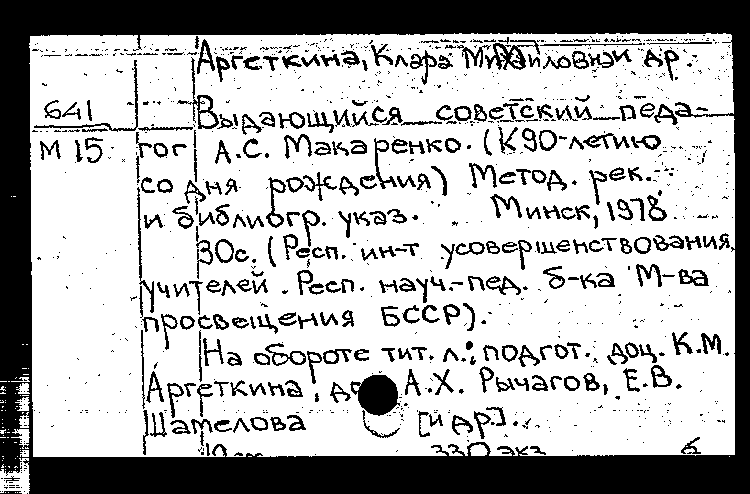 Аргеткина, Клара Михайловна и др.
641 Выдающийся советский педа-
М 15 гог А.С. Макаренко. (К 90-летию
со дня рождения) Метод. рек.
и библиогр. указ. Минск, 1978
30с. (Респ. ин-т усовершенствования
учителей. Респ. науч.-пед. б-ка М-ва
просвещения БССР).
На обороте тит. л.: подгот. доц. К.М.
Аргеткина, А.Х. Рычагов, Е.В.
Шамелова [и др.].
330 экз б